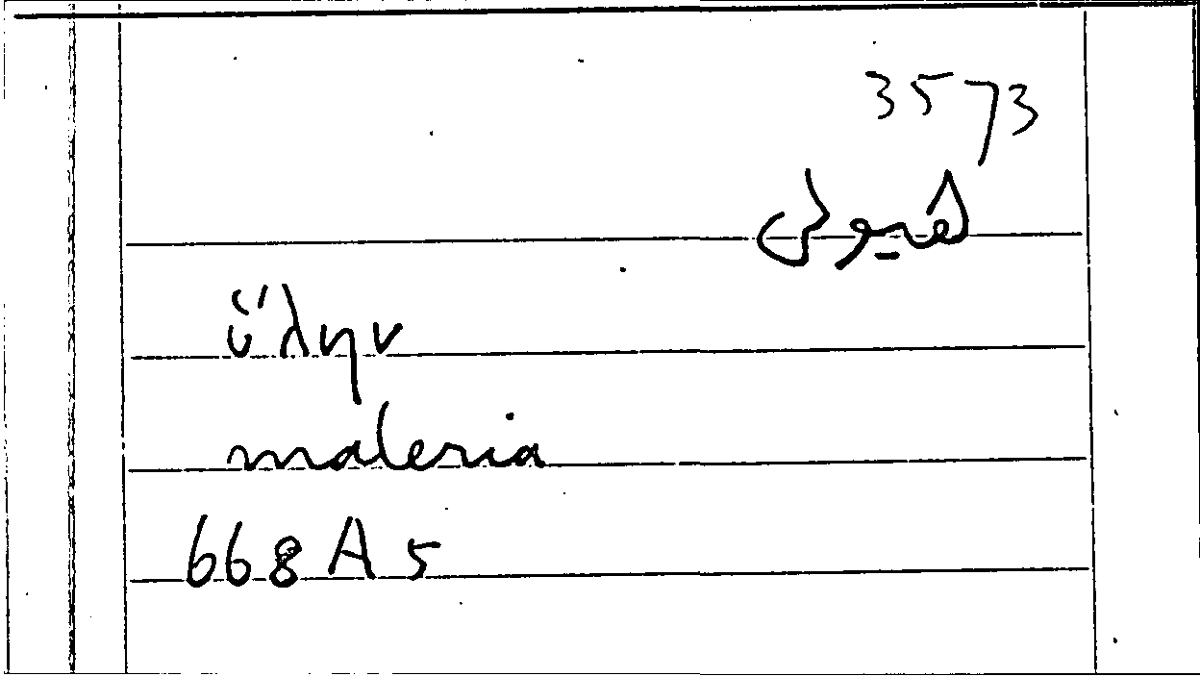 3573
ὕλην
materia
668A5